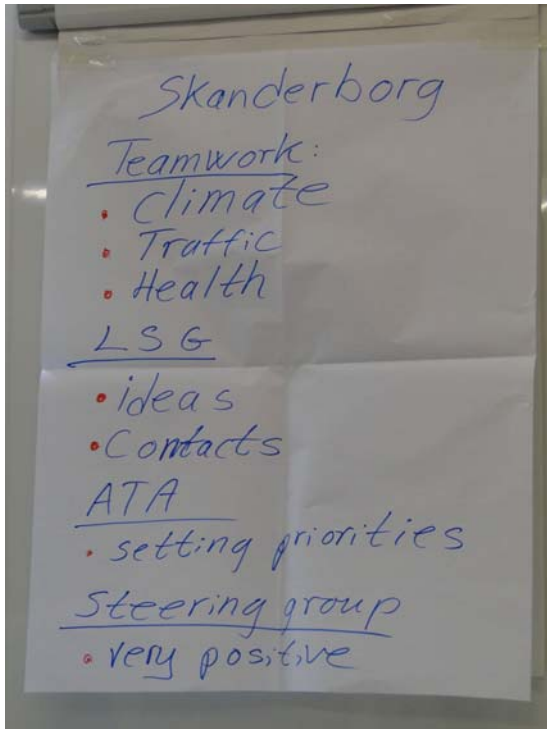 Skanderborg
Teamwork:
• Climate
• Traffic
• Health
LSG
• ideas
• Contacts
ATA
• setting priorities
Steering group
• very positive